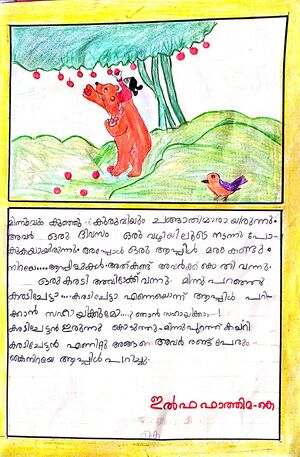 മിന്നുവും കുഞ്ഞു കുരുവിയും ചങ്ങാതിമാരായിരുന്നു.
അവർ ഒരു ദിവസം ഒരു വഴിയിലൂടെ നടന്നു പോ
കുകയായിരുന്നു. അപ്പോൾ ഒരു ആപ്പിൾ മരം കണ്ടു.
നിറയെ.... ആപ്പിളുകൾ. അത് കണ്ട് അവർക്ക് കൊതി വന്നു.
ഒരു കരടി അവിടേക്ക് വന്നു. മിന്നു പറഞ്ഞു
കരടിചേട്ടാ... കരടിചേട്ടാ എന്നെയൊന്ന് ആപ്പിൾ പറി-
ക്കാൻ സഹായിക്കുമോ...? ഞാൻ സഹായിക്കാം...!
കരടിചേട്ടൻ ഇരുന്നു കൊടുത്തു. മിന്നു പുറത്ത് കയറി
കരടിചേട്ടൻ എണീറ്റു. അങ്ങനെ അവർ രണ്ട് പേരും
കൈനിറയെ ആപ്പിൾ പറിച്ചു.
ഇൽഫ ഫാത്തിമ-കെ